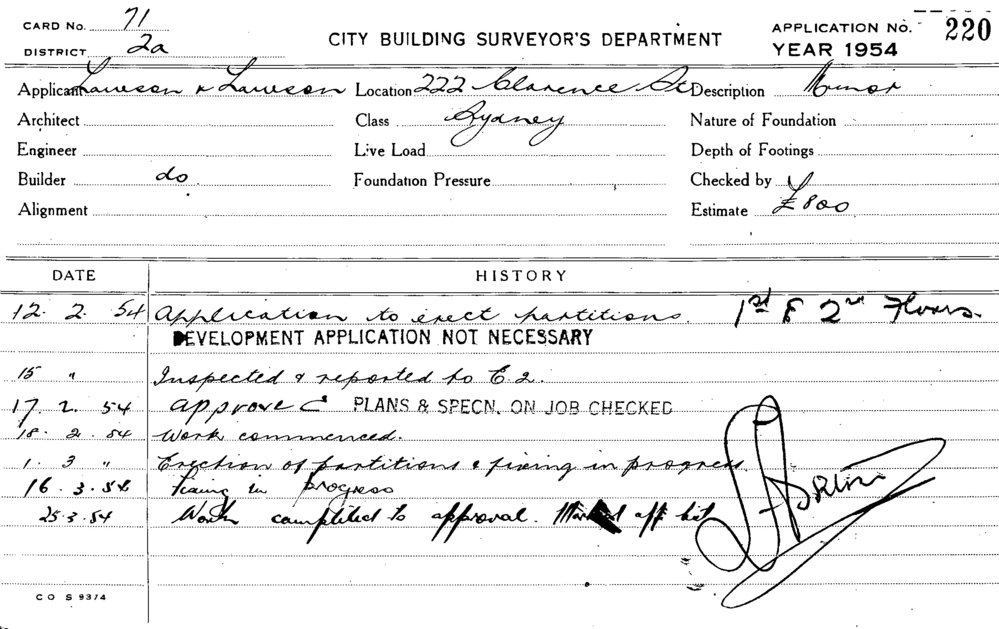 CARD No. 71
DISTRICT 2a
CITY BUILDING SURVEYOR'S DEPARTMENT
APPLICATION No. 220
YEAR 1954
Applicant Lawson & Lawson Location 222 Clarence St Description Minor
Architect Class Sydney Nature of Foundation
Engineer Live Load Depth of Footings
Builder do Foundation Pressure Checked by
Alignment Estimate £800
DATE HISTORY
12. 2. 54 Application to erect partitions. 1st & 2nd Floors.
DEVELOPMENT APPLICATION NOT NECESSARY
15 " Inspected & reported to E.2.
17. 2. 54 Approve PLANS & SPECN. ON JOB CHECKED
18. 2. 54 Work commenced.
1. 3 " Erection of partitions & fixing in progress.
16. 3. 54 Fixing in progress
25.3.54 Work completed to approval. off
C O S 9374